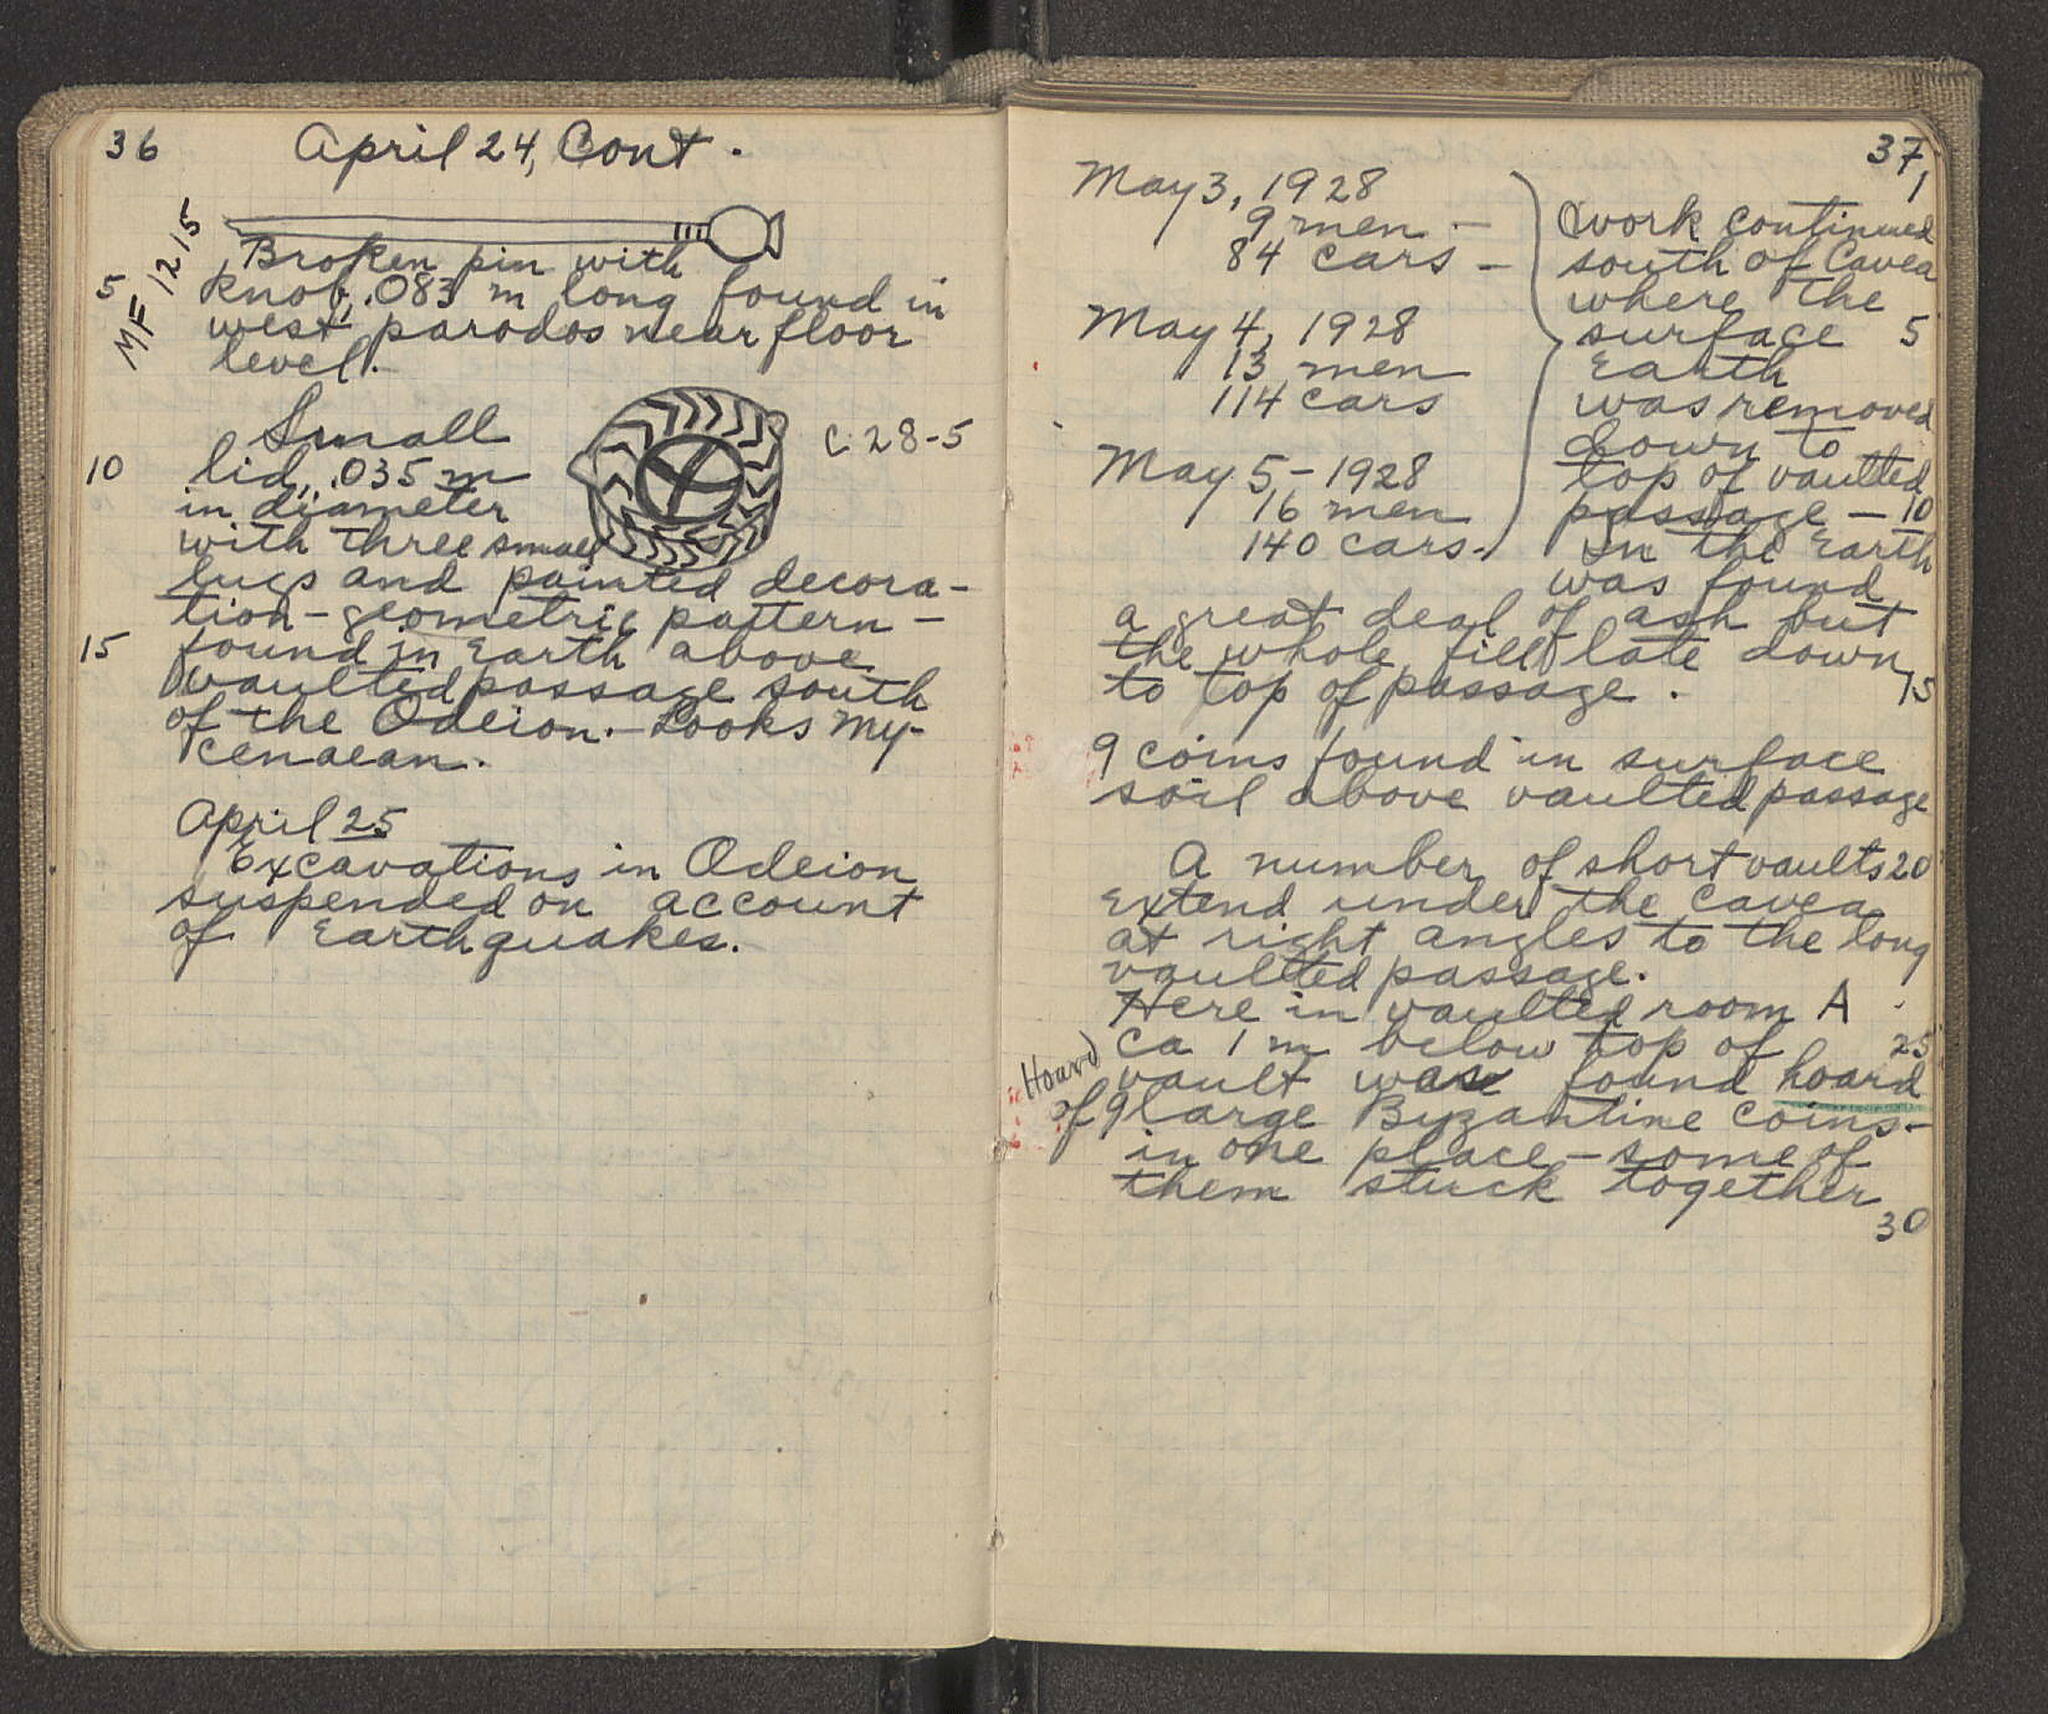 36
April 24, Cont.
MF 1215
Broken pin with
5
knob, .083 m long found in
west parodos near floor
level.
Small
C 28-5
10
lid, .035 m
in diameter
with three small
lugs and painted decora-
tion - geometric pattern -
15
found in Earth above
vaulted passage south
of the Odeion. - Looks My-
cenaean.
April 25
Excavations in Odeion
suspended on account
of Earthquakes.
37
1
May 3, 1928
9 men -
84 cars -
May 4, 1928
13 men
114 cars
May 5 - 1928
16 men
140 cars -
work continued
south of Cavea
where the
surface 5
Earth
was removed
down to
top of vaulted
passage - 10
In the Earth
was found
a great deal of ash but
the whole fill late down
to top of passage. 15
9 coins found in surface
soil above vaulted passage
A number of short vaults 20
Extend under the cavea
at right angles to the long
vaulted passage.
Here in vaulted room A
ca 1 m below top of 25
Hoard
vault was found hoard
of 9 large Byzantine coins -
in one place - some of
them stuck together
30